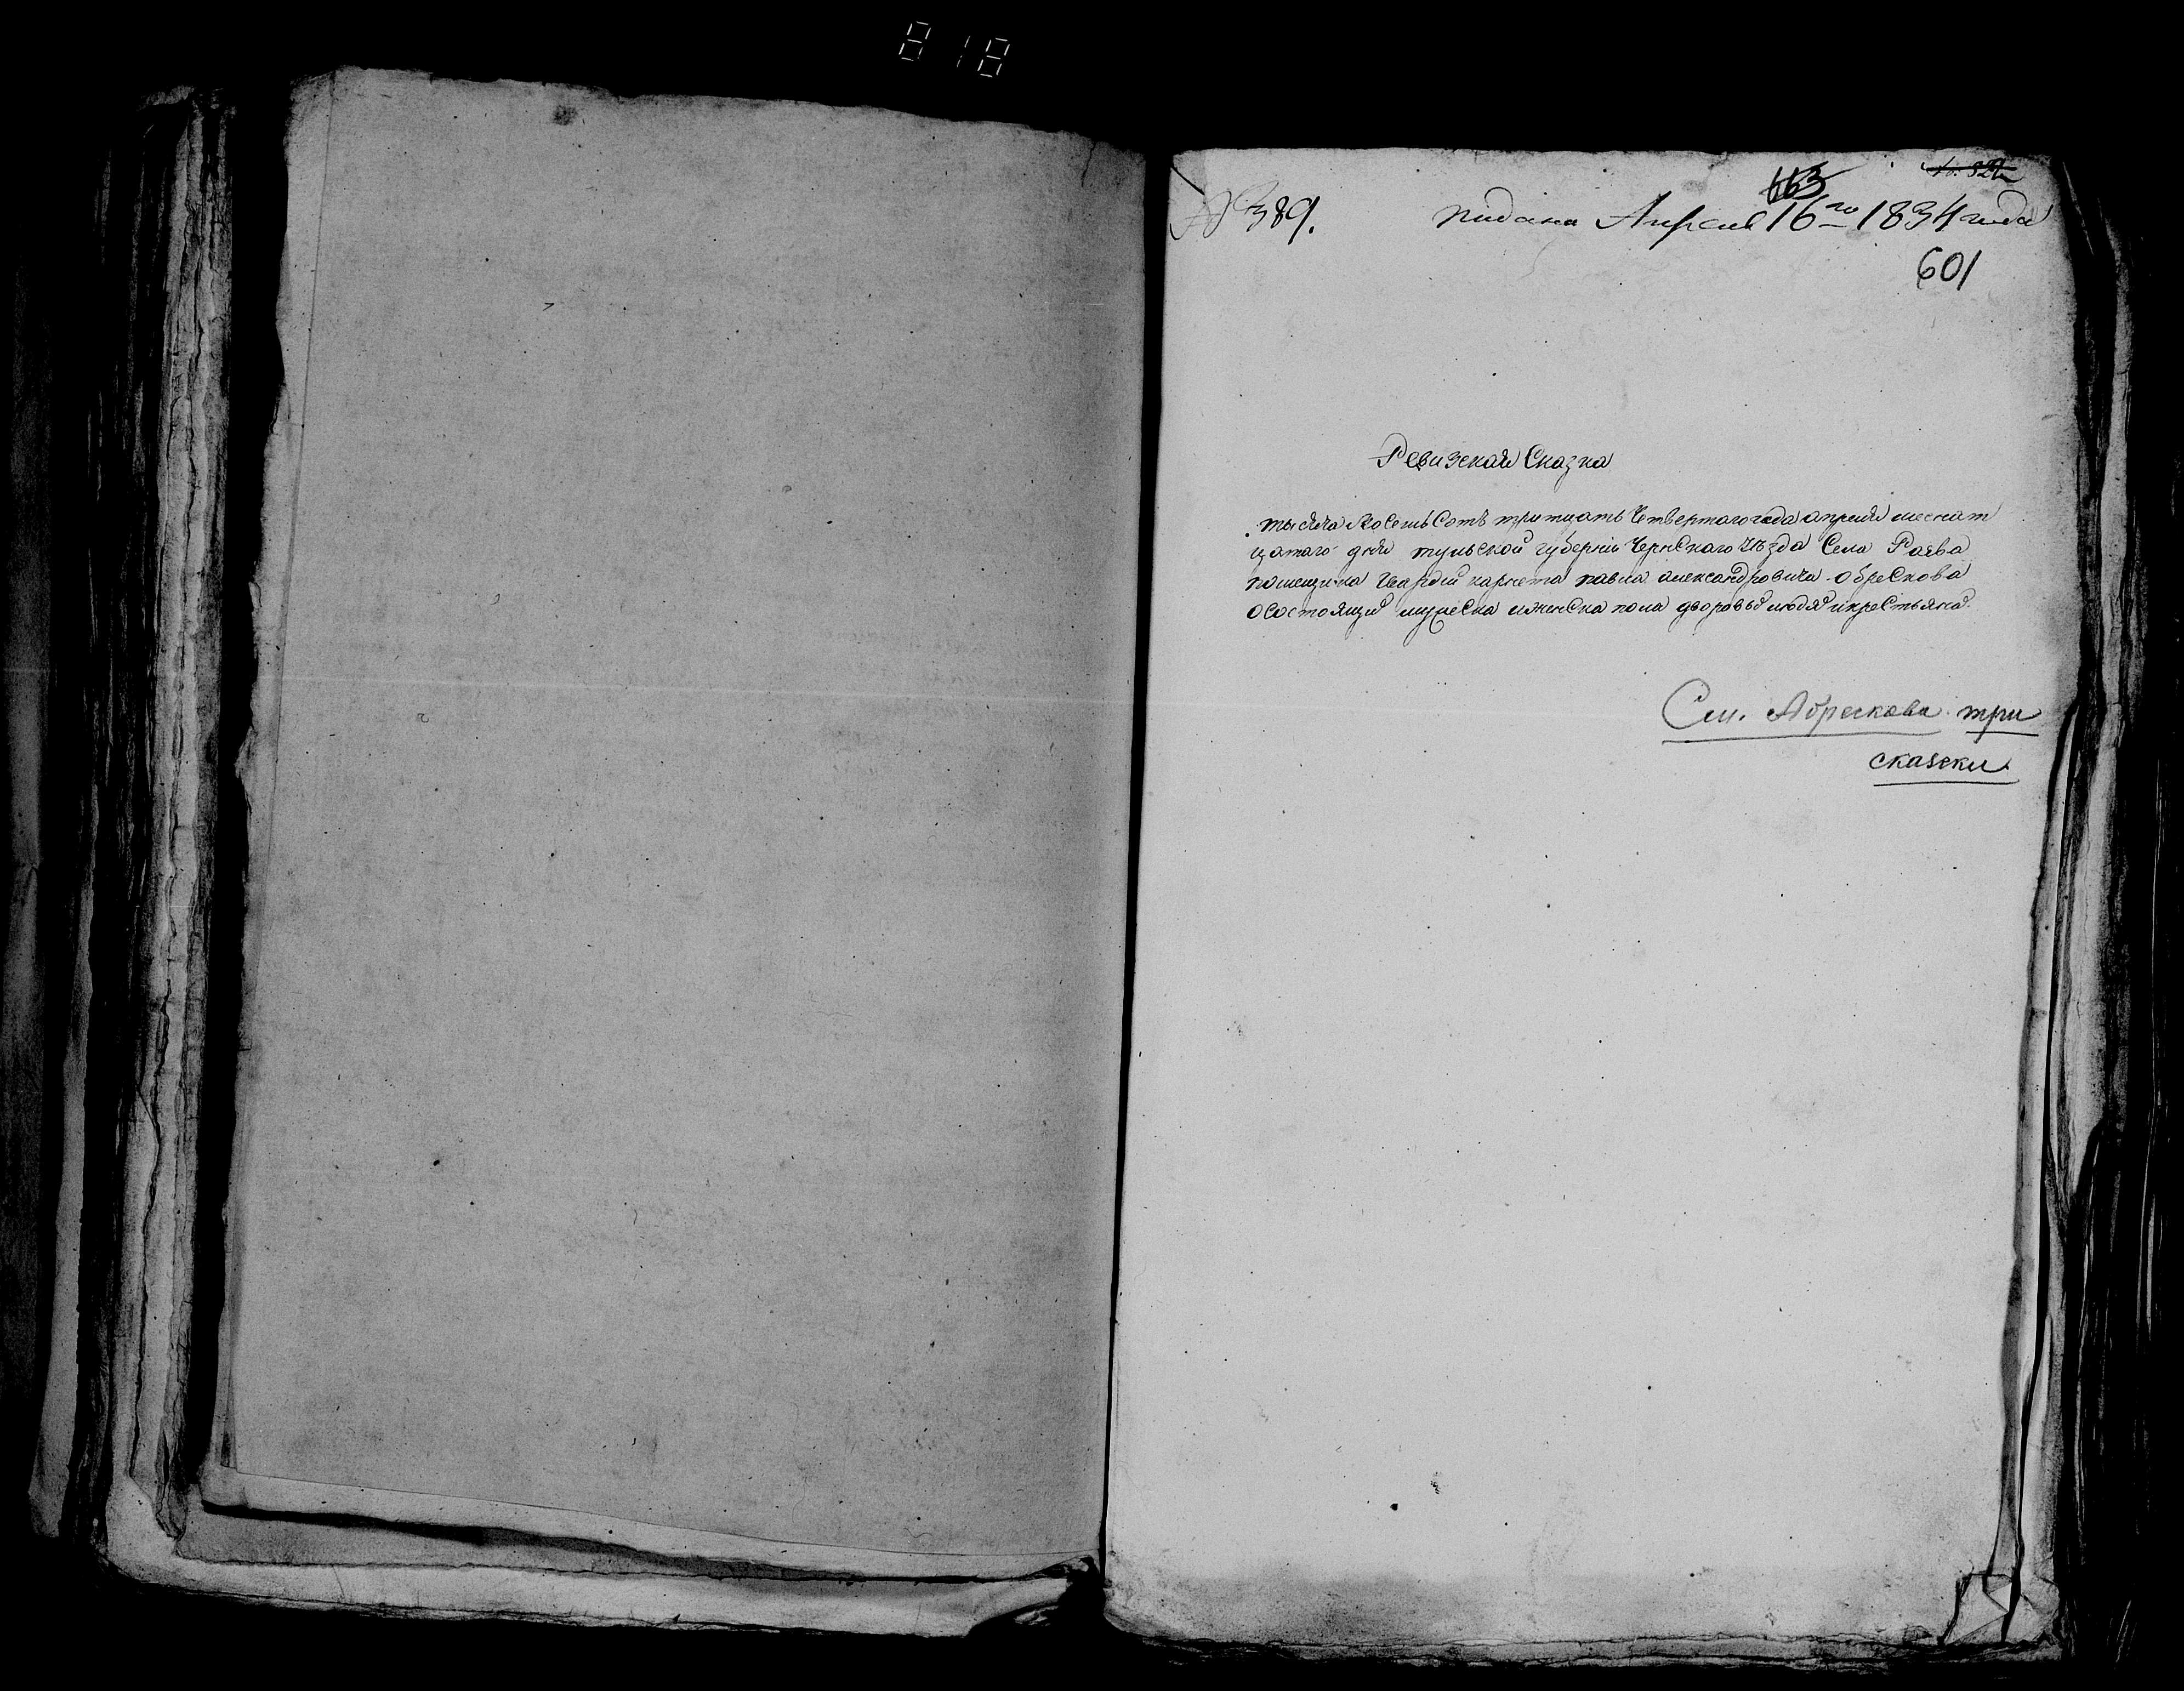 818
663
№ 389. подана Апреля 16го 1834 года
601
Ревизская Сказка
тысяча Восемь Сотъ тритцать Четвертаго года апреля месяат
цатаго дня тульской губерніи Чернскаго уѣзда Села Раева
помещика Гвардіи карнета павла александровича Обрескова
о Состоящи мужеска и женска пола дворовы людя и крестьяна
См. Абрескова три
сказки